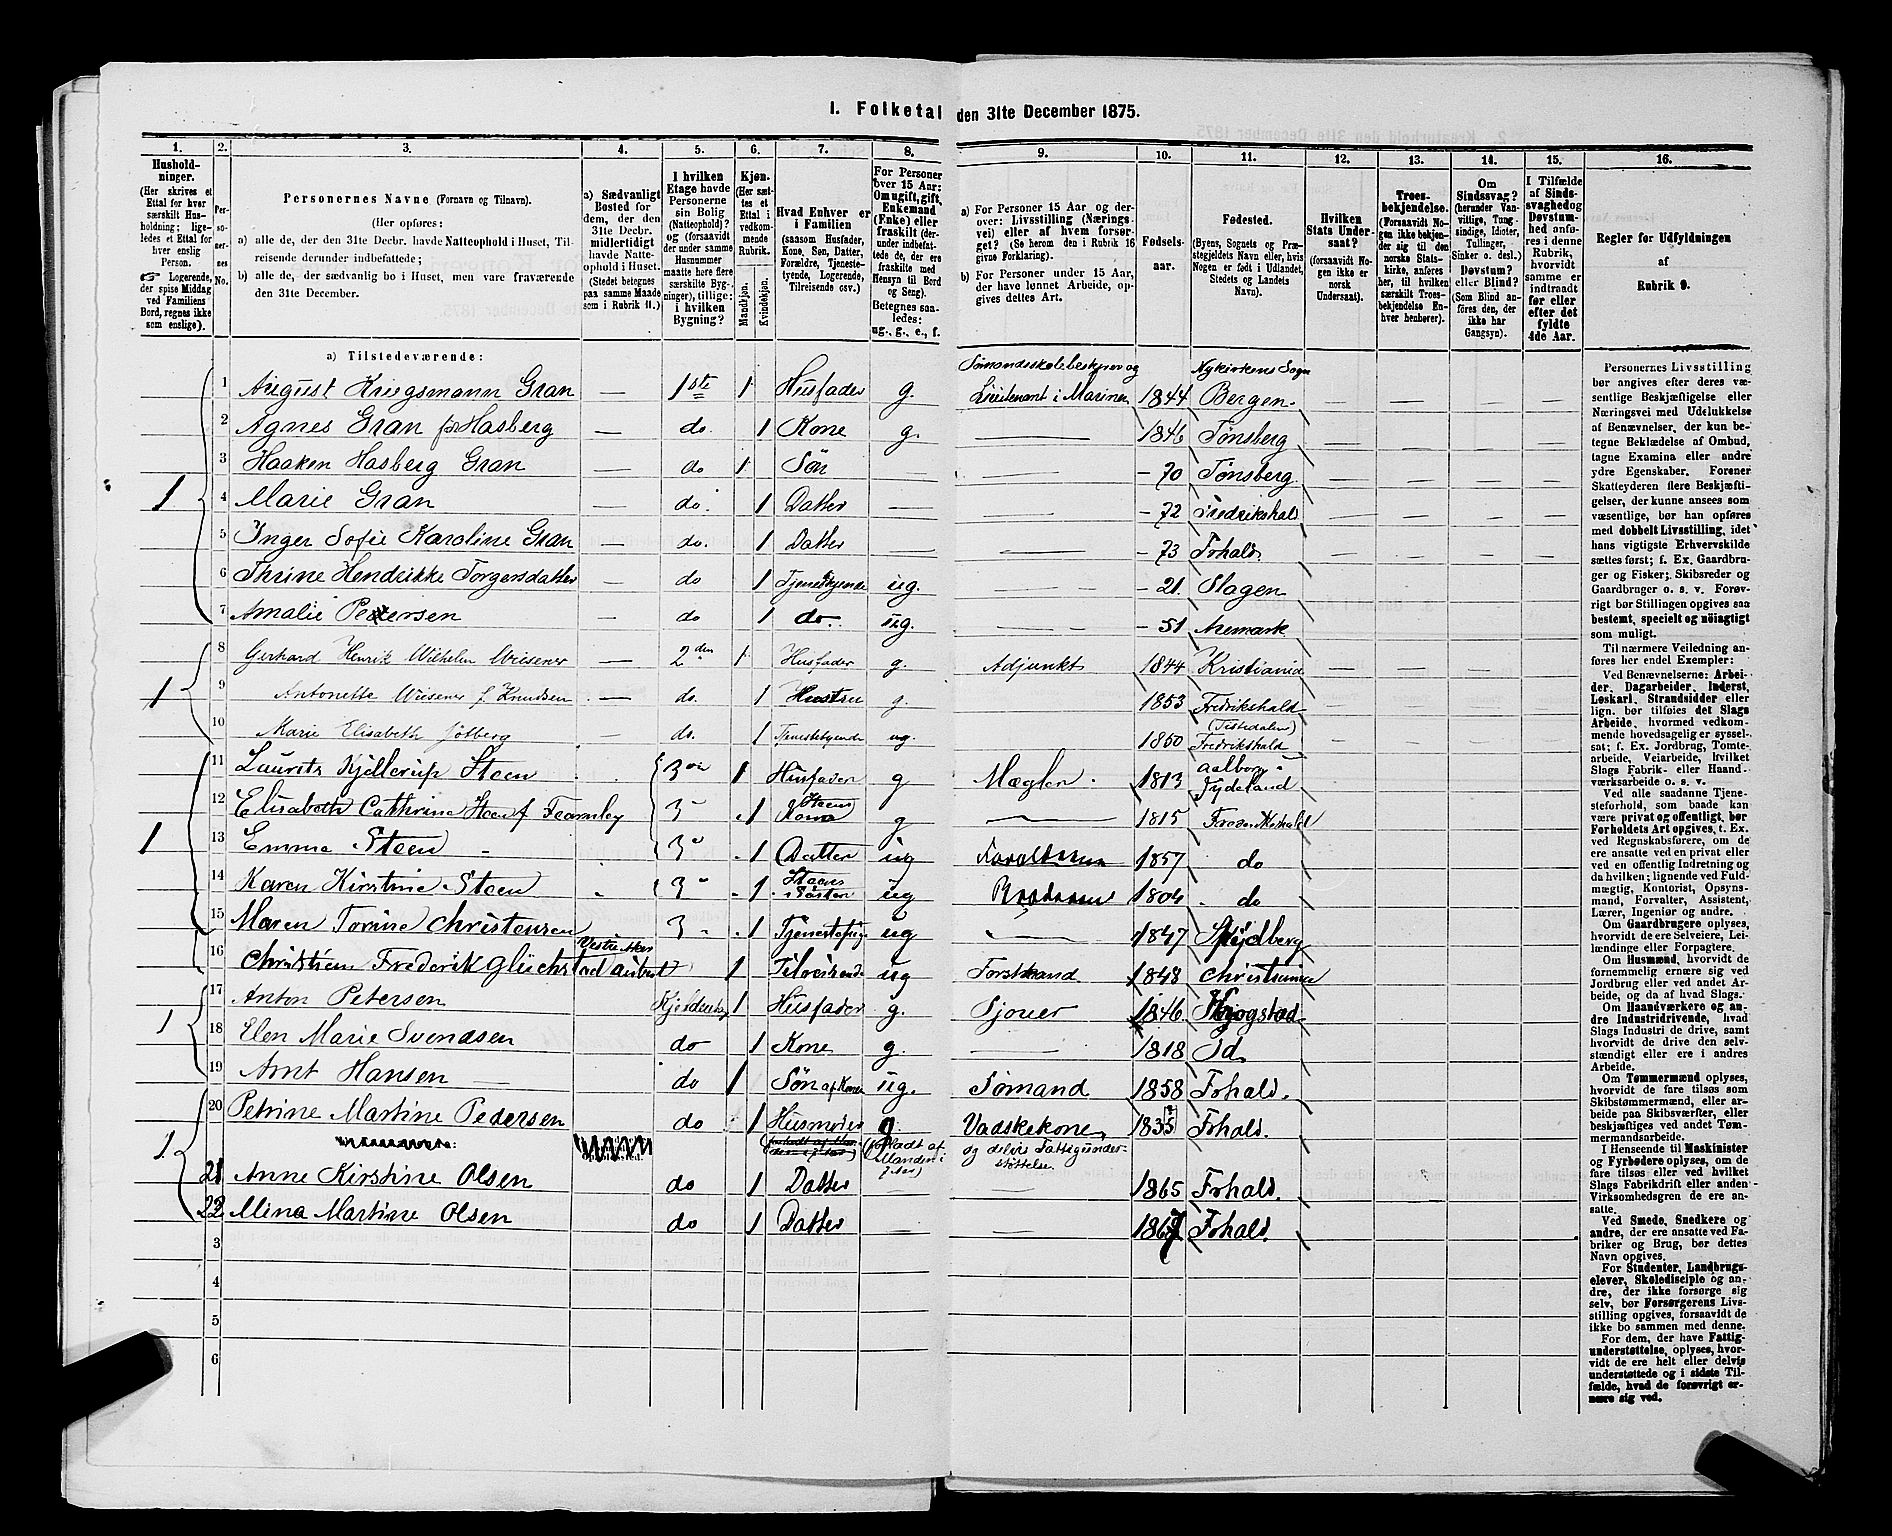 I. Folketal den 31te December 1875.
1. 2. 3. 4. 5. 6. 7. 8. 9. 10. 11. 12. 13. 14. 15. 16.
Husholdninger.
(Her skrives et
Ettal for hver
særskilt Husholdning;
ligeledes et Ettal for
hver enslig
Person.
Logerende,
der spise Middag
ved Familiens
Bord, regnes ikke
som enslige).
Personernes No.
Personernes Navne (Fornavn og Tilnavn).
(Her opføres:
a) alle de, der den 31te Decbr. havde Natteophold i Huset, Tilreisende
derunder indbefattede;
b) alle de, der sædvanlig bo i Huset, men vare fraværende
den 31te December.
a) Sædvanligt
Bosted for
dem, der den
31te Decbr.
midlertidigt
havde Natteophold
i Huset.
(Stedet betegnes
paa samme Maade
som i Rubrik 11.)
I hvilken
Etage havde
Personerne
sin Bolig
(Natteophold)?
og (forsaavidt
der under samme
Husnummer
maatte høre flere
særskilte Bygninger),
tillige:
i hvilken
Bygning?
Kjøn.
(Her sættes
et
Ettal i
vedkommende
Rubrik.
Mandkjøn.
Kvindekjøn.
Hvad Enhver er
i Familien
(saasom Husfader,
Kone, Søn, Datter,
Forældre, Tjenestetyende,
Logerende,
Tilreisende osv.)
For Personer
over 15 Aar:
Om ugift, gift,
Enkemand
(Enke) eller
fraskilt (derunder
indbefattede
de, der ere
fraskilte med
Hensyn til Bord
og Seng).
Betegnes saaledes:
ug., g., e., f.
a) For Personer 15 Aar og derover:
Livsstilling (Næringsvei)
eller af hvem forsørget?
(Se herom den i Rubrik 16
givne Forklaring).
b) For Personer under 15 Aar,
der have lønnet Arbeide, opgives
dettes Art.
Fødselsaar.
Fødested.
(Byens, Sognets og Præstegjeldets
Navn eller, hvis
Nogen er født i Udlandet,
Stedets og Landets
Navn).
Hvilken
Stats Undersaat?
(forsaavidt Nogen
ikke er
norsk
Undersaat).
Troesbekjendelse.
(Forsaavidt Nogen
ikke bekjender
sig til den
norske Statskirke,
anføres
her, til hvilken
særskilt Troesbekjendelse
Enhver
henhører).
Om
Sindssvag?
(herunder Vanvittige,
Tungsindige,
Idioter,
Tullinger,
Sinker o. desl.)
Døvstum?
eller Blind?
(Som Blind anføres
den, der
ikke har
Gangsyn).
I Tilfælde
af Sindssvaghed
og
Døvstumhed
anføres
i denne
Rubrik,
hvorvidt
samme er
indtraadt
før eller
efter det
fyldte
4de Aar.
Regler for Udfyldningen
af
Rubrik 9.
a) Tilstedeværende:
1 August Kriegsmann Gran — 1ste 1 Husfader g. Sømandsskolebestyrer og Lieutenant i Marinen 1844 Nykirkens Sogn Bergen.
2 Agnes Gran f. Hasberg — do. 1 Kone g. — 1846 Tønsberg
3 Haaken Hasberg Gran — do 1 Søn — -70 Tønsberg
1 4 Marie Gran — do. 1 Datter — — -72 Fredrikshald
5 Inger Sofie Karoline Gran — do. 1 Datter — — -73 Frhald.
6 Thrine Hendrikke Torgersdatter — do 1 Tjenestetyende ug. — -21 Slagen
7 Amalie Petersen — do 1 do. ug. — -51 Aremark
8 Gerhard Henrik Wilhelm Wiesener — 2den 1 Husfader g. Adjunkt 1844 Kristiania
1 9 Antonette Wiesener f. Knudsen — do. 1 Hustru g. 1853 Fredrikshald
10 Marie Elisabeth — do. 1 Tjenestetyende ug. 1850 (Tistedalen) Fredrikshald
11 Laurits Kjellerup Steen 3die 1 Husfader g Mægler. 1813 Aalborg Jydeland
12 Elisabeth Cathrine Steen f Fearnley 3 1 Steens Kone g — 1815 Frederikshald
1 13 Emma Steen 3 1 Datter ug 1857 do
14 Karen Kirstine Steen 3 1 Steens Søster ug 1804 do
15 Maren Torine Christensen 3 1 Tjenestepige ug — 1847 Spydberg
16 Christian Frederik Glüchstad Aubert 1 Tilreisende ug Forstmand 1848 Christiania
17 Anton Petersen 1 Husfader g. Sjouer 1846
1 18 Elen Marie Svendsen do 1 Kone g. — 1818 Id
19 Arnt Hansen do 1 Søn af Konen ug. Sømand 1858 Frhald.
20 Petrine Martine Pedersen do 1 Husmoder g. (forladt af Manden i 7 Aar) Vadskekone, og delvis Fattigunderstøttelse 1835 Frhald.
1
21 Anne Kirstine Olsen do 1 Datter — 1865 Frhald.
22 Mina Martine Olsen do 1 Datter — — 1867 Frhald.
3
4
5
6
Personernes Livsstilling
bør angives efter deres væsentlige
Beskjæftigelse eller
Næringsvei med Udelukkelse
af Benævnelser, der kun betegne
Beklædelse af Ombud,
tagne Examina eller andre
ydre Egenskaber. Forener
Skatteyderen flere Beskjæftigelser,
der kunne ansees som
væsentlige, bør han opføres
med dobbelt Livsstilling, idet
hans vigtigste Erhvervskilde
sættes først; f. Ex. Gaardbruger
og Fisker; Skibsreder og
Gaardbruger o. s. v. Forøvrigt
bør Stillingen opgives saa
bestemt, specielt og nøiagtigt
som muligt.
Til nærmere Veiledning anføres
her endel Exempler:
Ved Benævnelserne: Arbeider,
Dagarbeider, Inderst,
Løskarl, Strandsidder eller
lign. bør tilføies det Slags
Arbeide, hvormed vedkommende
hovedsagelig er sysselsat;
f. Ex. Jordbrug, Tomtearbeide,
Veiarbeide, hvilket
Slags Fabrik- eller Haandværksarbeide
o. s. v.
Ved alle saadanne Tjenesteforhold,
som baade kan
være privat og offentligt, bør
Forholdets Art opgives, t. Ex.
ved Regnskabsførere, om de
ere ansatte ved en privat eller
ved en offentlig Indretning og
da hvilken; lignende ved Fuldmægtig,
Kontorist, Opsynsmand,
Forvalter, Assistent,
Lærer, Ingeniør og andre.
Om Gaardbrugere oplyses,
hvorvidt de ere Selveiere, Leilændinge
eller Forpagtere.
Om Husmænd, hvorvidt de
fornemmelig ernære sig ved
Jordbrug eller ved andet Arbeide,
og da af hvad Slags.
Om Haandværkere og andre
Industridrivende, hvad
Slags Industri de drive, samt
hvorvidt de drive den selvstændigt
eller ere i andres
Arbeide.
Om Tømmermænd oplyses,
hvorvidt de fare tilsøs som
Skibstømmermænd, eller arbeide
paa Skibsværfter, eller
beskjæftiges ved andet Tømmermandsarbeide.
I Henseende til Maskinister
og Fyrbødere oplyses, om de
fare tilsøs eller ved hvilket
Slags Fabrikdrift eller anden
Virksomhedsgren de ere ansatte.
Ved Smede, Snedkere og
andre, der ere ansatte ved Fabriker
og Brug, bør dettes
Navn opgives.
For Studenter, Landbrugselever,
Skoledisciple og andre,
der ikke forsørge sig
selv, bør Forsørgerens Livsstilling
opgives, forsaavidt de
ikke bo sammen med denne.
For dem, der have Fattigunderstøttelse,
oplyses, hvorvidt
de ere helt eller delvis
understøttede og i sidste Tilfælde,
hvad de forøvrigt ernære
sig ved.